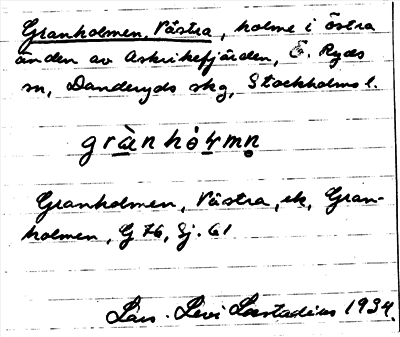 Granholmen, Västra, holme i östra
änden av Askrikefjärden, Ö. Ryds
sn, Danderyds skg, Stockholms l.
grànhóɫmn̥
Granholmen, Västra, ek, Gran-
holmen, G 76, Sj. 61
Lars-Levi Laestadius 1934.